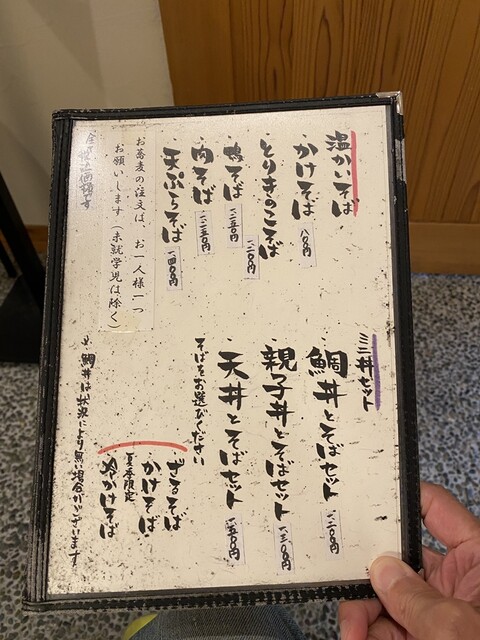 温かいそば
かけそば 八〇〇円
とりきのこそば 一、一〇〇円
鴨そば 一、二五〇円
肉そば 一、二五〇円
天ぷらそば 一、四〇〇円
お蕎麦の注文は、お一人様一つ
お願いします(未就学児は除く)
全て税込価格です
ミニ丼セット
鯛丼とそばセット 一、二〇〇円
親子丼とそばセット 一、三〇〇円
天丼とそばセット 一、五〇〇円
そばをお選びください
ざるそば
かけそば
夏季限定
冷かけそば
鯛丼は状況により無い場合がございます